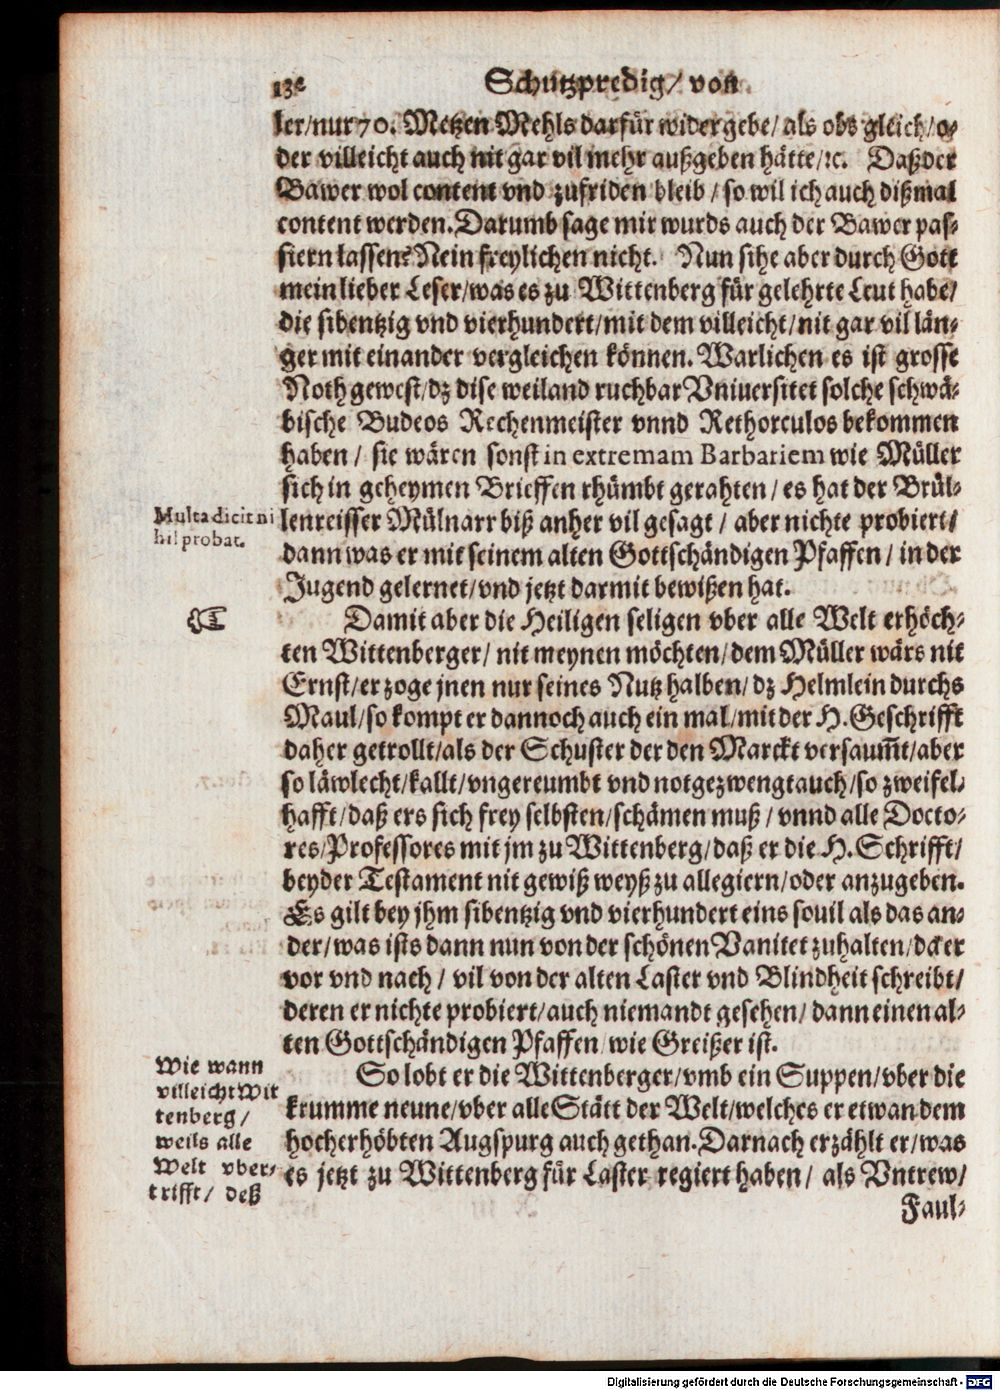 Schutzpredig/ von
ler/nur 70. Metzen Mehls darfür widergebe/ als obs gleich/o-
der villeicht auch nit gar vil mehr außgeben hätte/ꝛc. Daß der
Bawer wol content vnd zufriden bleib/ so wil ich auch dißmal
content werden. Darumb sage mir wurds auch der Bawer pas-
siern lassen? Nein freylichen nicht. Nun sihe aber durch Gott
mein lieber Leser/was es zu Wittenberg für gelehrte Leut habe/
die sibentzig vnd vierhundert/mit dem villeicht/nit gar vil län-
ger mit einander vergleichen können. Warlichen es ist grosse
Noth gewest/dz dise weiland ruchbar Vniuersitet solche schwä-
bische Budeos Rechenmeister vnnd Rethorculos bekommen
haben/ sie wären sonst in extremam Barbariem wie Müller
sich in geheymen Brieffen rhümbt gerahten/ es hat der Brül-
Multa dicit ni
hil probat.
lenreisser Mülnarr biß anher vil gesagt/ aber nichte probiert/
dann was er mit seinem alten Gottschändigen Pfaffen/ in der
Jugend gelernet/vnd jetzt darmit bewißen hat.
Damit aber die Heiligen seligen vber alle Welt erhöch-
ten Wittenberger/ nit meynen möchten/dem Müller wärs nit
Ernst/er zoge jnen nur seines Nutz halben/dz Helmlein durchs
Maul/so kompt er dannoch auch ein mal/mit der H. Geschrifft
daher getrollt/als der Schuster der den Marckt versaum̃t/aber
so läwlecht/kallt/vngereumbt vnd notgezwengt auch/so zweifel-
hafft/daß ers sich frey selbsten/schämen muß/ vnnd alle Docto-
res/Professores mit jm zu Wittenberg/daß er die H. Schrifft/
beyder Testament nit gewiß weyß zu allegiern/oder anzugeben.
Es gilt bey jhm sibentzig vnd vierhundert eins souil als das an-
der/was ists dann nun von der schönen Vanitet zuhalten/da er
vor vnd nach/ vil von der alten Laster vnd Blindheit schreibt/
deren er nichte probiert/auch niemandt gesehen/ dann einen al-
ten Gottschändigen Pfaffen/wie Greißer ist.
Wie wann
villeicht Wit
tenberg/
weils alle
Welt vber-
trifft/ deß
So lobt er die Wittenberger/vmb ein Suppen/vber die
krumme neune/vber alle Stätt der Welt/welches er etwan dem
hocherhöbten Augspurg auch gethan. Darnach erzählt er/was
es jetzt zu Wittenberg für Laster regiert haben/ als Vntrew/
Faul-
Digitalisierung gefördert durch die Deutsche Forschungsgemeinschaft - DFG